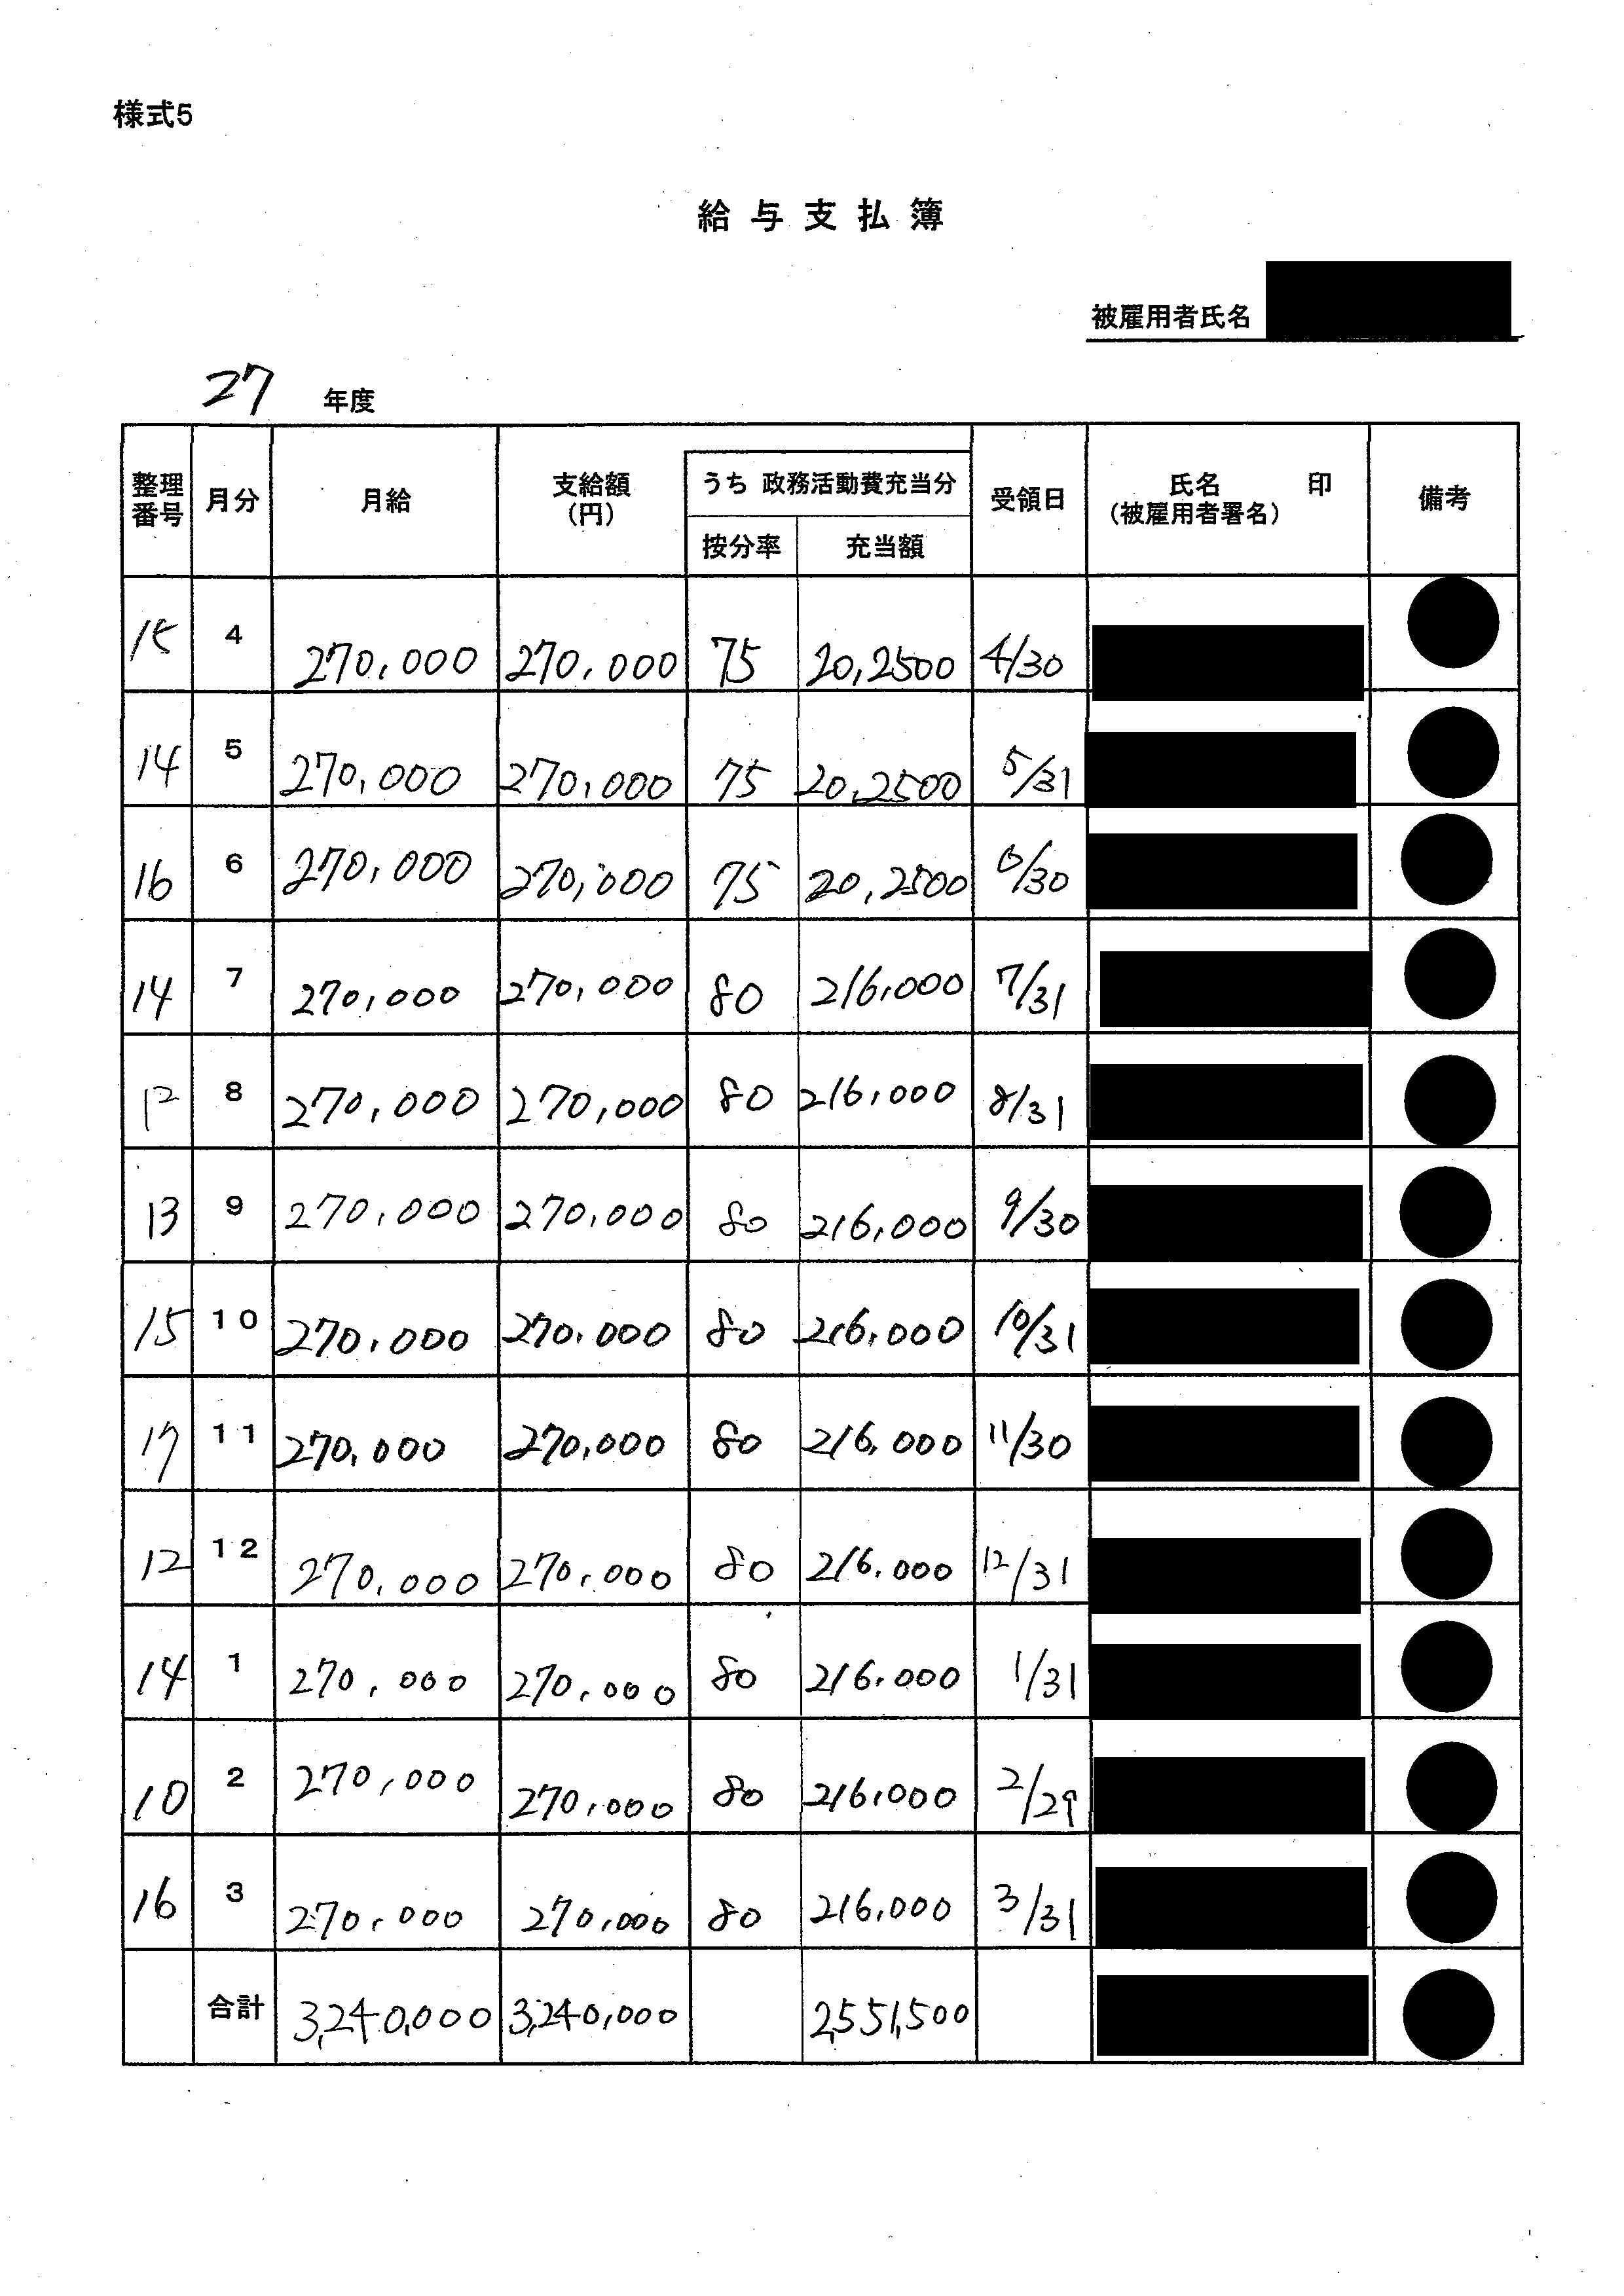 様式5
給与支払簿
被雇用者氏名
27 年度
整理番号 月分 月給 支給額(円) うち 政務活動費充当分 按分率 充当額 受領日 氏名 印 (被雇用者署名) 備考
15 4 270,000 270,000 75 20,2500 4/30
14 5 270,000 270,000 75 20,2500 5/31
16 6 270,000 270,000 75 20,2500 6/30
14 7 270,000 270,000 80 216,000 7/31
12 8 270,000 270,000 80 216,000 8/31
13 9 270,000 270,000 80 216,000 9/30
15 10 270,000 270,000 80 216,000 10/31
17 11 270,000 270,000 80 216,000 11/30
12 12 270,000 270,000 80 216,000 12/31
14 1 270,000 270,000 80 216,000 1/31
10 2 270,000 270,000 80 216,000 2/29
16 3 270,000 270,000 80 216,000 3/31
合計 3,240,000 3,240,000 2,551,500